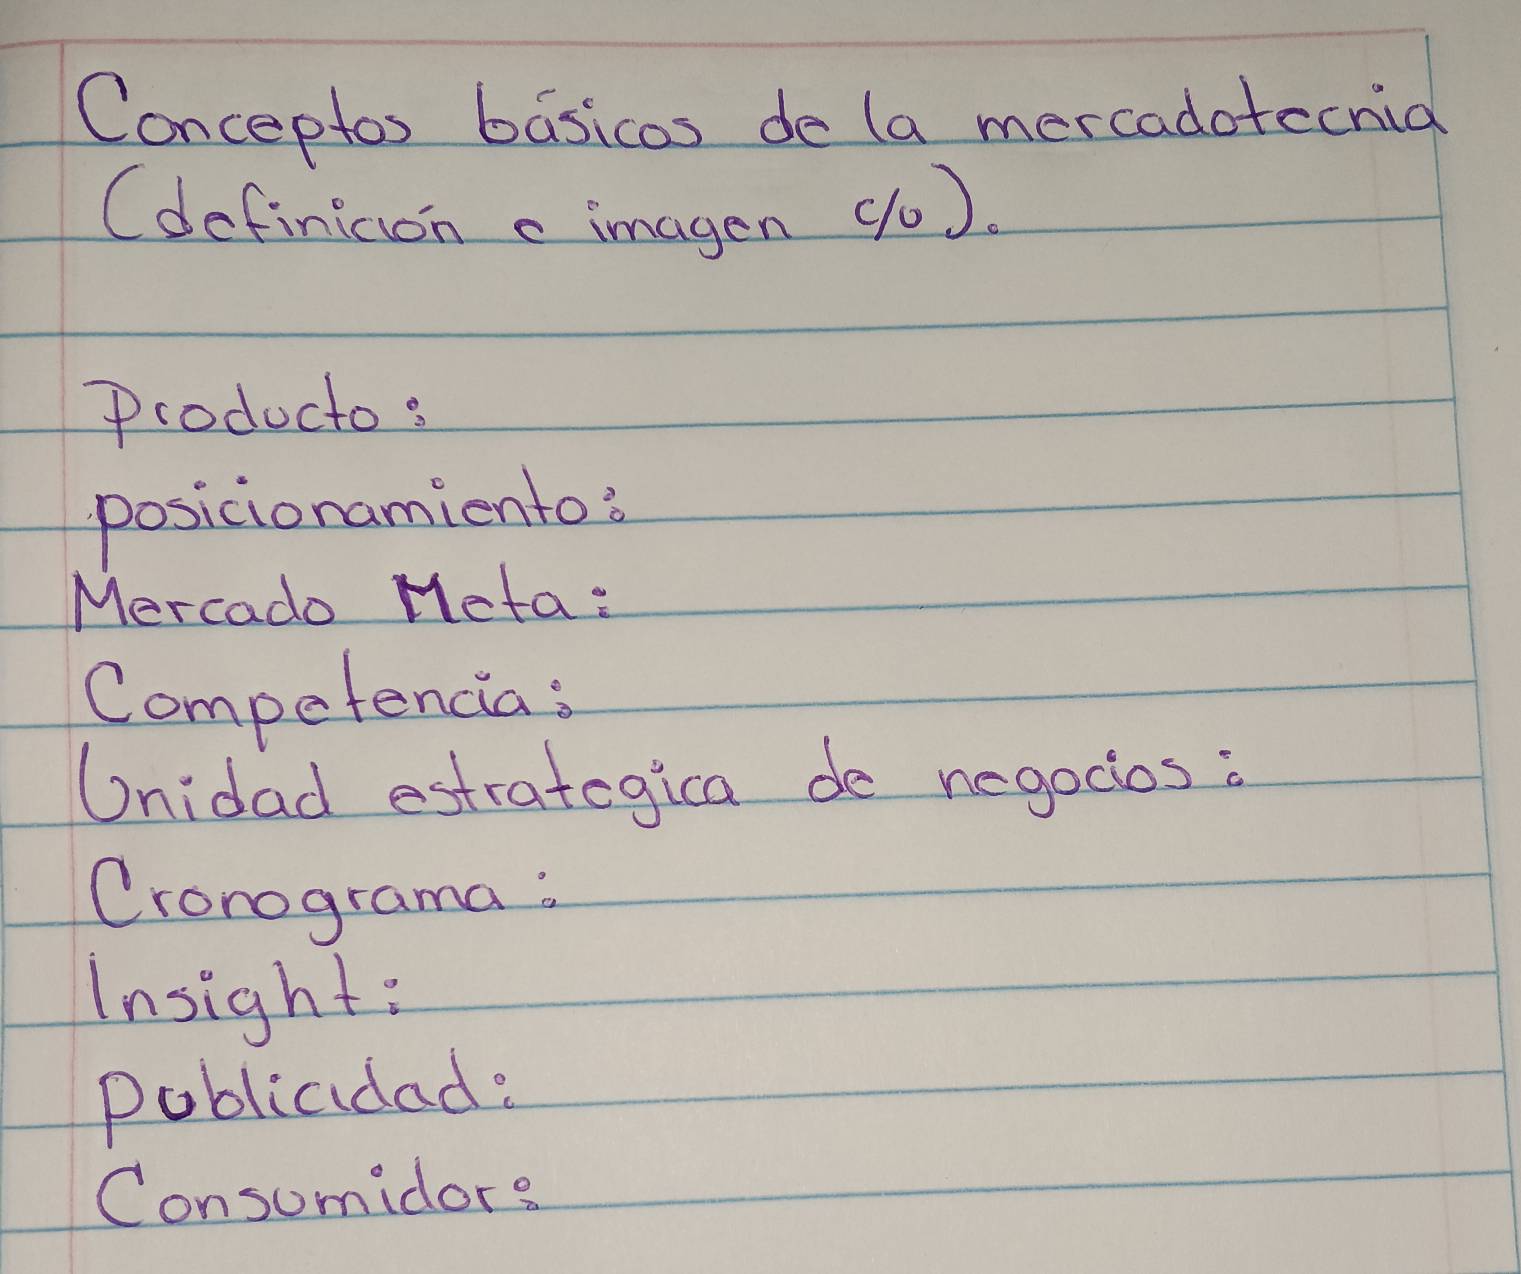 Conceptos básicos de la mercadotecnia
(definición e imagen c/u).
Producto:
posicionamiento:
Mercado Meta:
Competencia:
Unidad estrategica de negocios:
Cronograma:
Insight:
publicidad:
Consumidor: